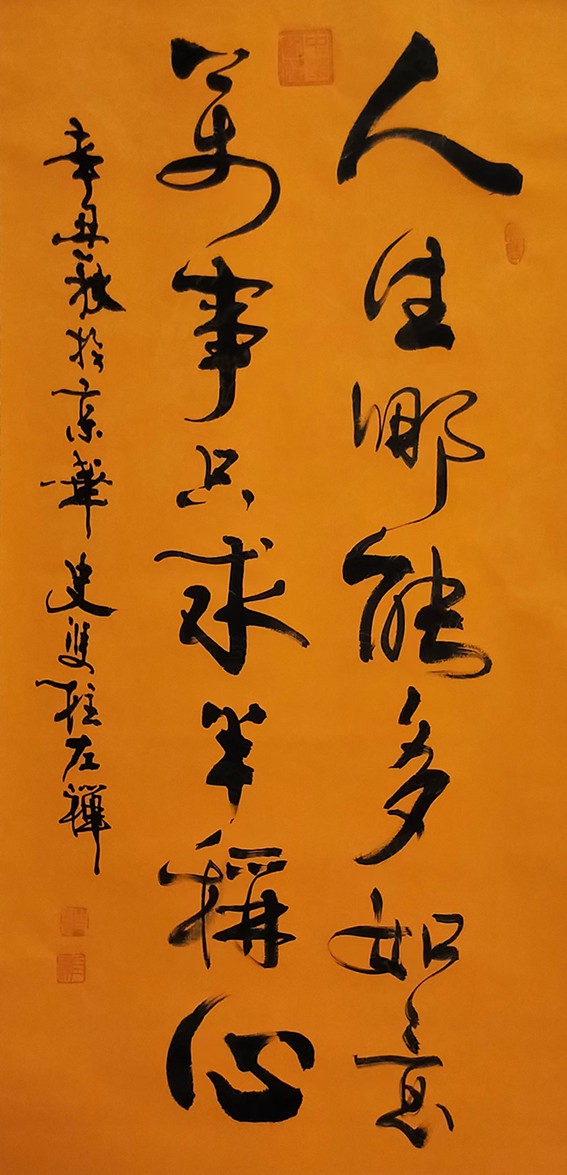 人生哪能多如意
萬事只求半稱心
辛丑秋於京華 史雙柱左禪